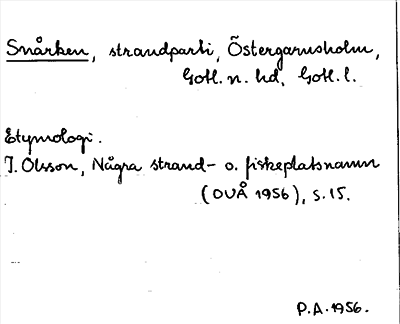 Snårken, strandparti, Östergarnsholm,
Gotl. n. hd, Gotl. l.
Etymologi.
I. Olsson, Några strand- o. fiskeplatsnamn
(OUÅ 1956), s. 15.
P.A. 1956.